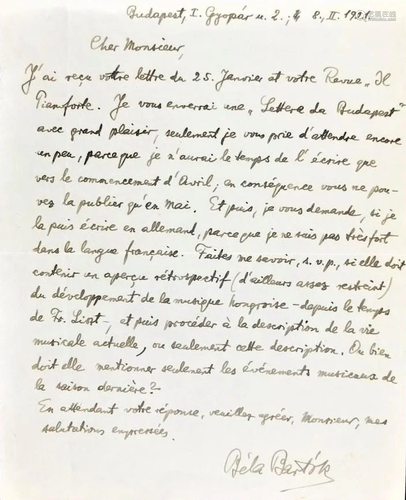 Budapest, I. Gyopár u. 2.; 8., II. 1921.
Cher Monsieur,
J'ai reçu votre lettre du 25. Janvier et votre Revue „Il
Pianoforte. Je vous enverrai une „Lettera da Budapest"
avec grand plaisir, seulement je vous prie d'attendre encore
un peu, parce que je n'aurai le temps de l'écrire que
vers le commencement d'Avril; en conséquence vous ne pou-
vez la publier qu'en Mai. Et puis, je vous demande, si je
la puis écrire en allemand, parce que je ne suis pas très fort
dans la langue française. Faites me savoir, s. v. p., si elle doit
contenir un aperçu rétrospectif (d'ailleurs assez restreint)
du développement de la musique hongroise – depuis le temps
de Fr. Liszt –, et puis procéder à la description de la vie
musicale actuelle, ou seulement cette description. Ou bien
doit elle mentionner seulement les événements musicaux de
la saison dernière? –
En attendant votre réponse, veuillez agréer, Monsieur, mes
salutations empressées.
Béla Bartók